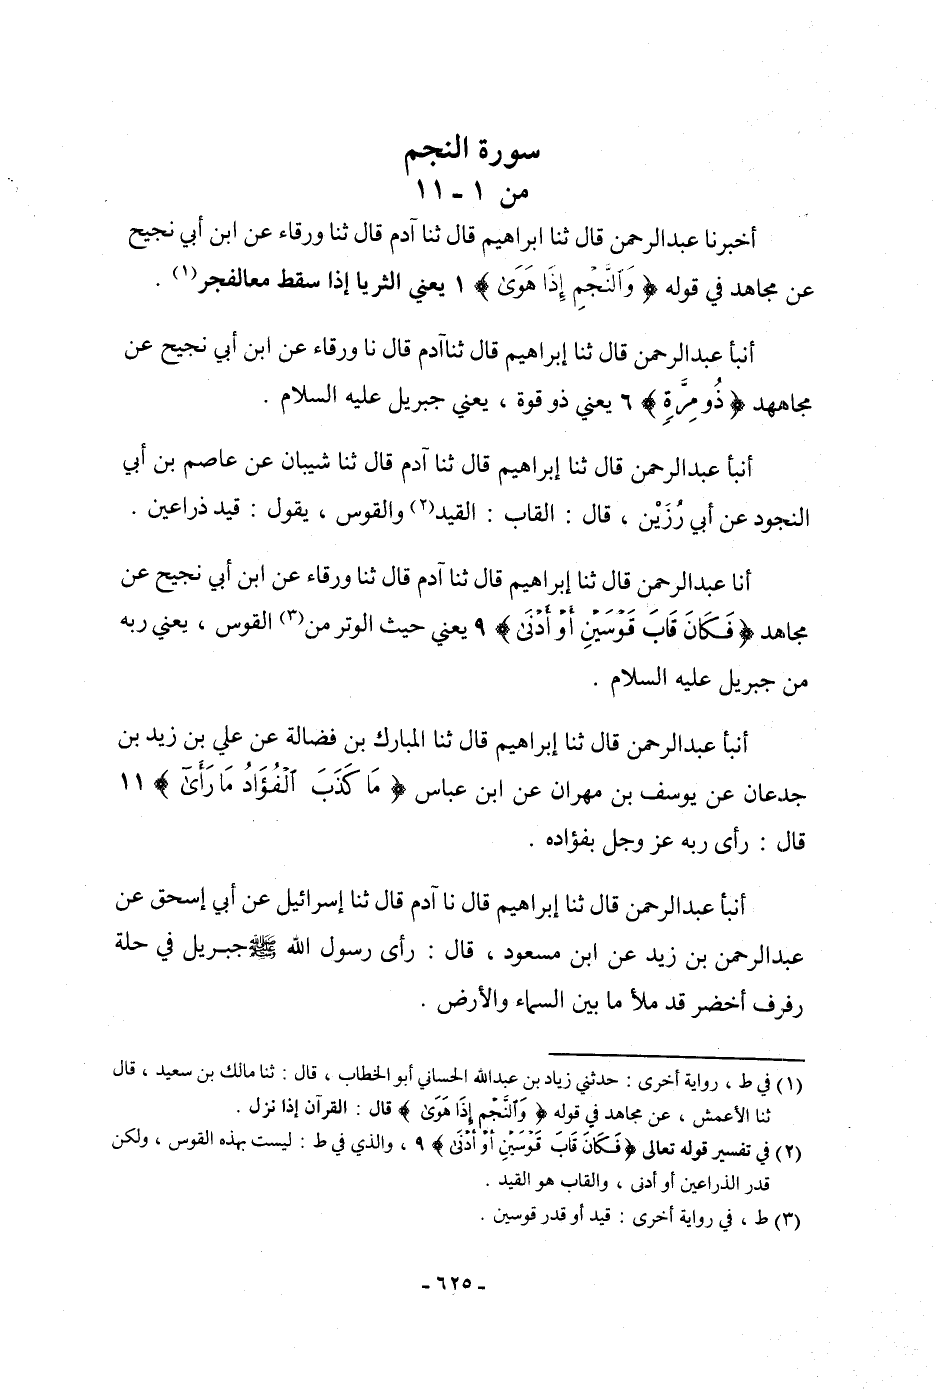 سورة النجم
من ١ - ١١
أخبرنا عبدالرحمن قال ثنا ابراهيم قال ثنا آدم قال ثنا ورقاء عن ابن أبي نجيح
عن مجاهد في قوله ﴿ وَٱلنَّجْمِ إِذَا هَوَىٰ ﴾ ١ يعني الثريا إذا سقط معالفجر(١) .
أنبأ عبدالرحمن قال ثنا إبراهيم قال ثناآدم قال نا ورقاء عن ابن أبي نجيح عن
مجاههد ﴿ ذُو مِرَّةٍ ﴾ ٦ يعني ذو قوة ، يعني جبريل عليه السلام .
أنبأ عبدالرحمن قال ثنا إبراهيم قال ثنا آدم قال ثنا شيبان عن عاصم بن أبي
النجود عن أبي رُزَيْن ، قال : القاب : القيد(٢) والقوس ، يقول : قيد ذراعين .
أنا عبدالرحمن قال ثنا إبراهيم قال ثنا آدم قال ثنا ورقاء عن ابن أبي نجيح عن
مجاهد ﴿ فَكَانَ قَابَ قَوْسَيْنِ أَوْ أَدْنَىٰ ﴾ ٩ يعني حيث الوتر من(٣) القوس ، يعني ربه
من جبريل عليه السلام .
أنبأ عبدالرحمن قال ثنا إبراهيم قال ثنا المبارك بن فضالة عن علي بن زيد بن
جدعان عن يوسف بن مهران عن ابن عباس ﴿ مَا كَذَبَ ٱلْفُؤَادُ مَا رَأَىٰٓ ﴾ ١١
قال : رأى ربه عز وجل بفؤاده .
أنبأ عبدالرحمن قال ثنا إبراهيم قال نا آدم قال ثنا إسرائيل عن أبي إسحق عن
عبدالرحمن بن زيد عن ابن مسعود ، قال : رأى رسول الله ﷺ جبريل في حلة
رفرف أخضر قد ملأ ما بين السماء والأرض .
(١) في ط ، رواية أخرى : حدثني زياد بن عبدالله الحساني أبو الخطاب ، قال : ثنا مالك بن سعيد ، قال
ثنا الأعمش ، عن مجاهد في قوله ﴿ وَٱلنَّجْمِ إِذَا هَوَىٰ ﴾ قال : القرآن إذا نزل .
(٢) في تفسير قوله تعالى ﴿ فَكَانَ قَابَ قَوْسَيْنِ أَوْ أَدْنَىٰ ﴾ ٩ ، والذي في ط : ليست بهذه القوس ، ولكن
قدر الذراعين أو أدنى ، والقاب هو القيد .
(٣) ط ، في رواية أخرى : قيد أو قدر قوسين .
- ٦٢٥ -